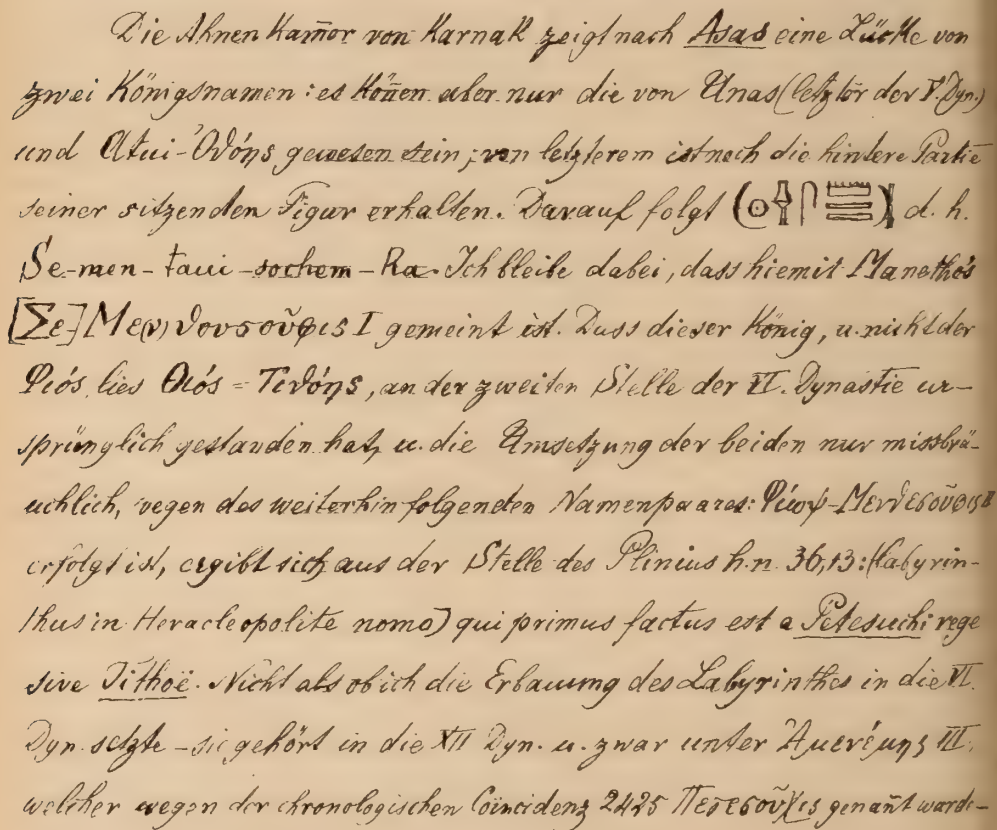 Die Ahnen Kam̄er von Karnak zeigt nach Asas eine Lücke von
zwei Königsnamen: es kön̄en aber nur die von Unas (letztôr der V. Dyn.)
und Atui-Ὀθόης gewesen sein; von letzterem ist noch die hintere Partie
seiner sitzenden Figur erhalten. Darauf folgt d. h.
Se-men-taui-sochem-Ra. Ich bleibe dabei, dass hiemit Manethós
[Σε]Με(ν)θουσοῦφις I gemeint ist. Dass dieser König, u. nicht der
Φιός, lies Θιός = Τιθόης, an der zweiten Stelle der VI. Dynastie ur-
sprünglich gestanden hat, u. die Umsetzung der beiden nur missbrä-
uchlich, wegen des weiterhin folgenden Namenpaares: Φίωψ-Μενθεσοῦφις II
erfolgt ist, ergibt sich aus der Stelle des Plinius h. n. 36,13: (labyrin-
thus in Heracleopolite nomo) qui primus factus est a Petesuchi rege
sive Tithoë. Nicht als ob ich die Erbauung des Labyrinthes in die VI.
Dyn. setzte – sie gehört in die XII Dyn. u. zwar unter Ἀμενέμης III.
welcher wegen der chronologischen Coïncidenz 2425 Πετεσοῦχις genan̄t wurde –